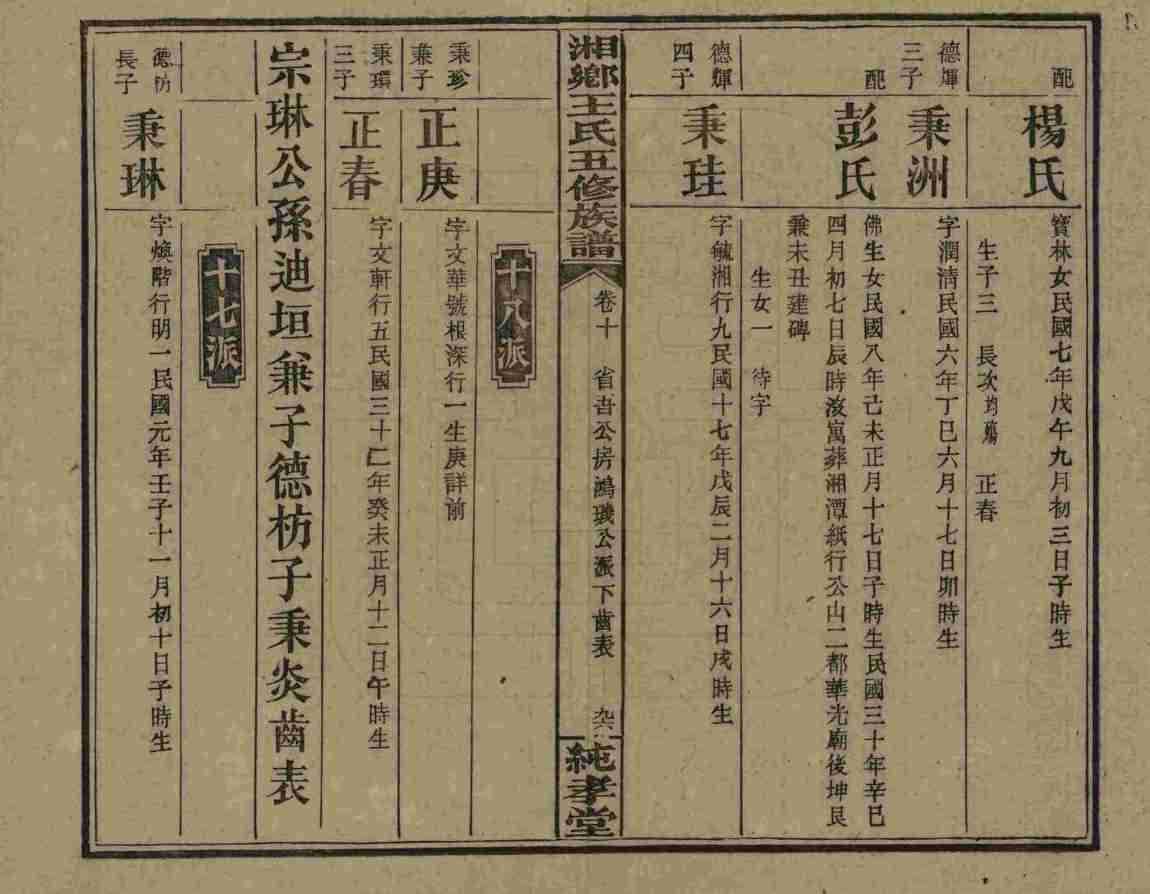 配 楊氏 寶林女民國七年戊午九月初三日子時生
生子三 長次均殤 正春
德煇三子 秉洲 字潤清民國六年丁巳六月十七日卯時生
配 彭氏 佛生女民國八年己未正月十七日子時生民國三十年辛巳
四月初七日辰時歿寓葬湘潭紙行公山二都華光廟後坤艮
兼未丑建碑
生女一 待字
德煇四子 秉珪 字毓湘行九民國十七年戊辰二月十六日戌時生
湘鄉王氏五修族譜 卷十 省吾公房鴻磯公派下齒表 純孝堂
十八派
秉珍兼子 正庚 字文華號根深行一生庚詳前
秉環三子 正春 字文軒行五民國三十二年癸未正月十二日午時生
宗琳公孫迪垣兼子德枋子秉炎齒表
十七派
德枋長子 秉琳 字煥階行明一民國元年壬子十一月初十日子時生